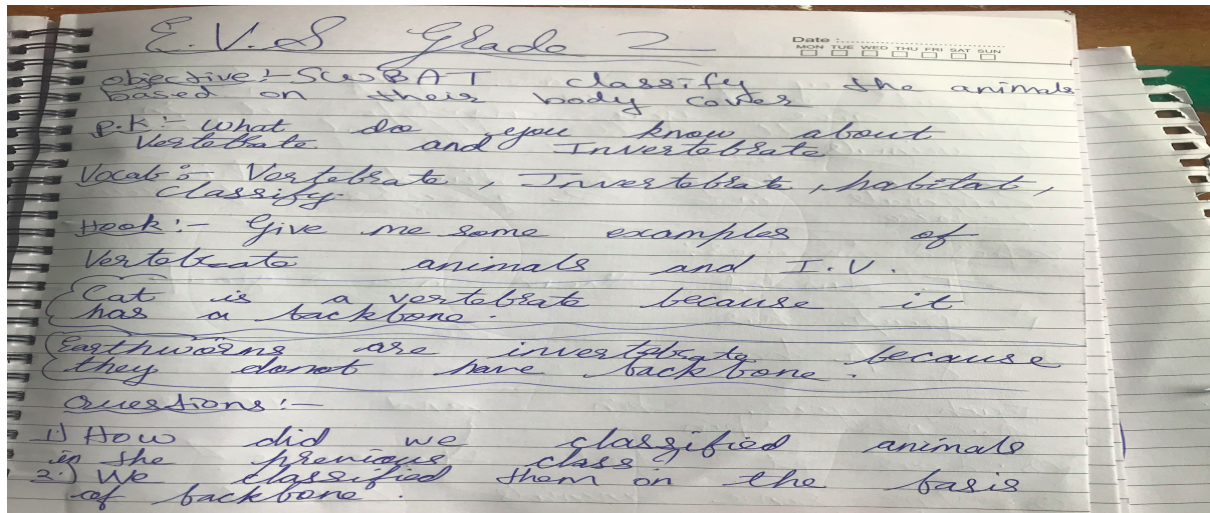 E.V.S Grade 2
Date :
MON TUE WED THU FRI SAT SUN
objective :- SWBAT classify the animals
based on their body cover
P.K :- what do you know about
Vertebrate and Invertebrate
Vocab :- Vertebrate, Invertebrate, habitat,
classify
Hook :- Give me some examples of
Vertebrate animals and I.V.
Cat is a vertebrate because it
has a backbone.
Earthworms are invertebrate because
they donot have backbone.
Questions :-
1) How did we classified animals
in the previous class
2.) We classified them on the basis
of backbone.